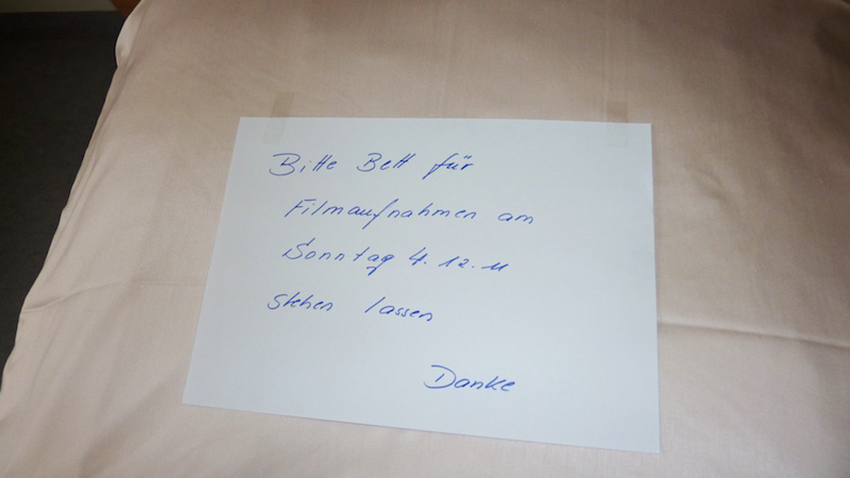 Bitte Bett für
Filmaufnahmen am
Sonntag 4.12.11
stehen lassen
Danke